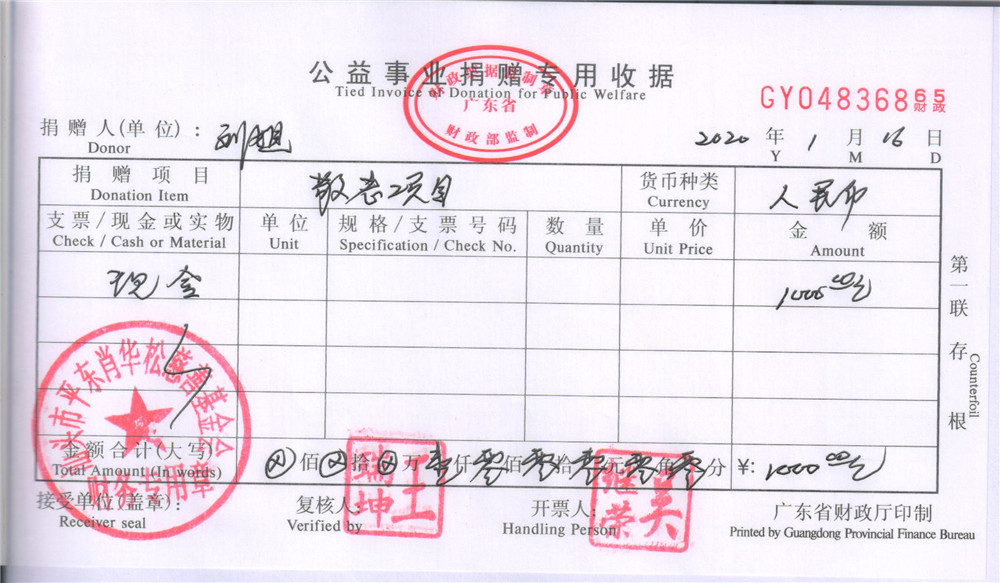 公益事业捐赠专用收据
Tied Invoice of Donation for Public Welfare
财政票据监制章
广东省
财政部监制
GY04836865
财政
捐赠人(单位):
Donor
2020 年 1 月 16 日
Y M D
捐赠项目 敬老项目 货币种类 人民币
Donation Item Currency
支票/现金或实物 单位 规格/支票号码 数量 单价 金额
Check / Cash or Material Unit Specification / Check No. Quantity Unit Price Amount
现金 1000.00元
第一联 存根
Counterfoil
市平东肖华松慈善基金会
财务专用章
金额合计(大写) 佰 拾 万 壹仟 零佰 零拾 零元 零角 零分 ¥: 1000.00元
Total Amount (In words)
接受单位(盖章): 复核人: 王瑞坤 开票人: 吴继荣 广东省财政厅印制
Receiver seal Verified by Handling Person Printed by Guangdong Provincial Finance Bureau